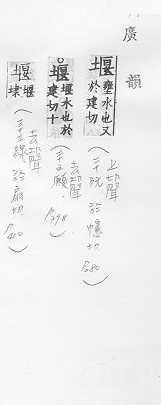 廣韻
堰 壅水也又於建切
上聲
(二十阮 於幰切 P280)
堰 堰水也於建切十
去聲
(二十五願 P398)
堰 堰埭
去聲
(三十三線 於扇切 P410)